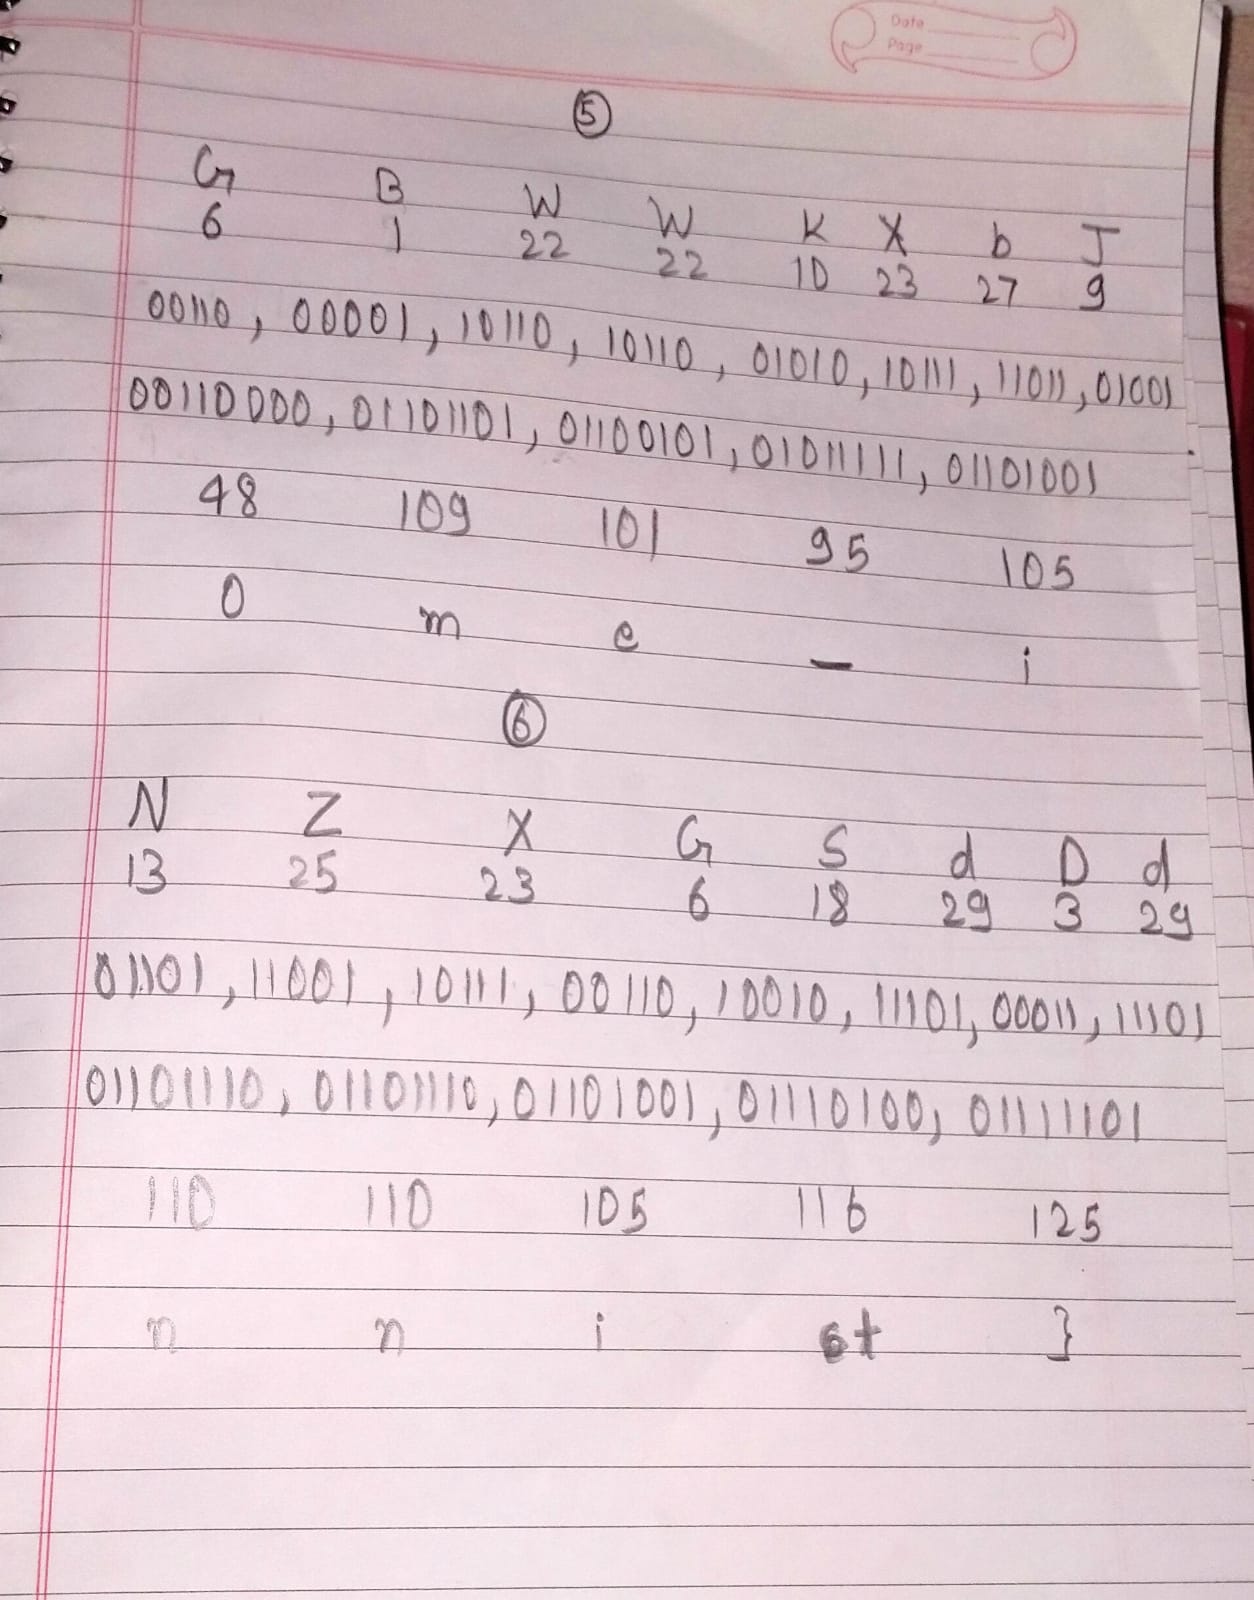 Date
Page
5
G B W W K X b J
6 1 22 22 10 23 27 9
00110, 00001, 10110, 10110, 01010, 10111, 11011, 01001
00110000, 01101101, 01100101, 01011111, 01101001
48 109 101 95 105
0 m e _ i
6
N Z X G S d D d
13 25 23 6 18 29 3 29
01101, 11001, 10111, 00110, 10010, 11101, 00011, 11101
01101110, 01101110, 01101001, 01110100, 01111101
110 110 105 116 125
n n i t }